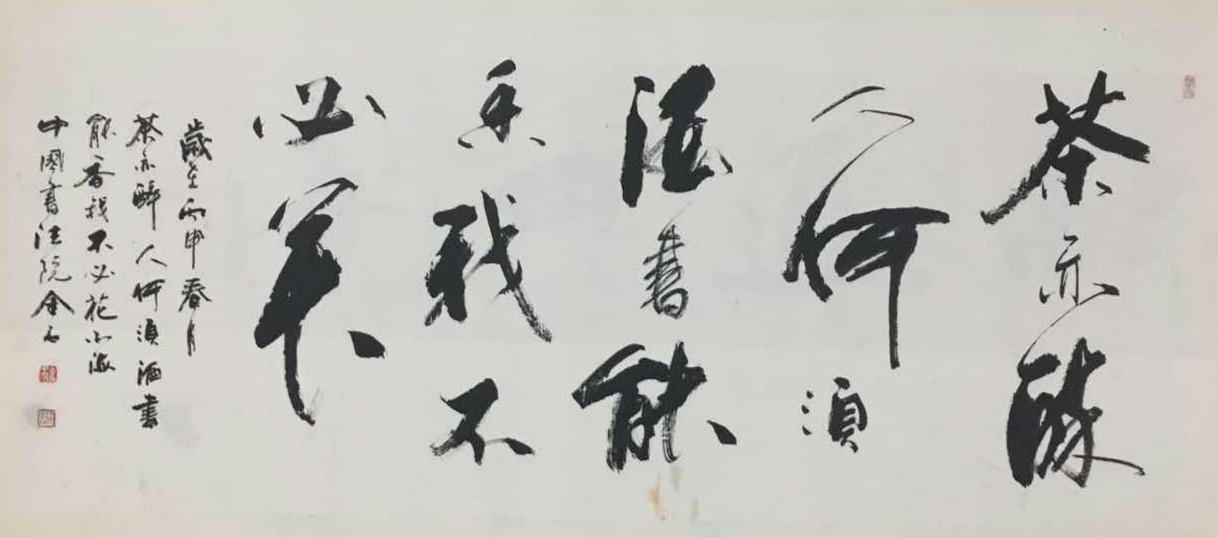 茶亦醉
人何須
酒書能
香我不
必花
歲在丙申春月
茶亦醉人何須酒書
能香我不必花
中國書法院